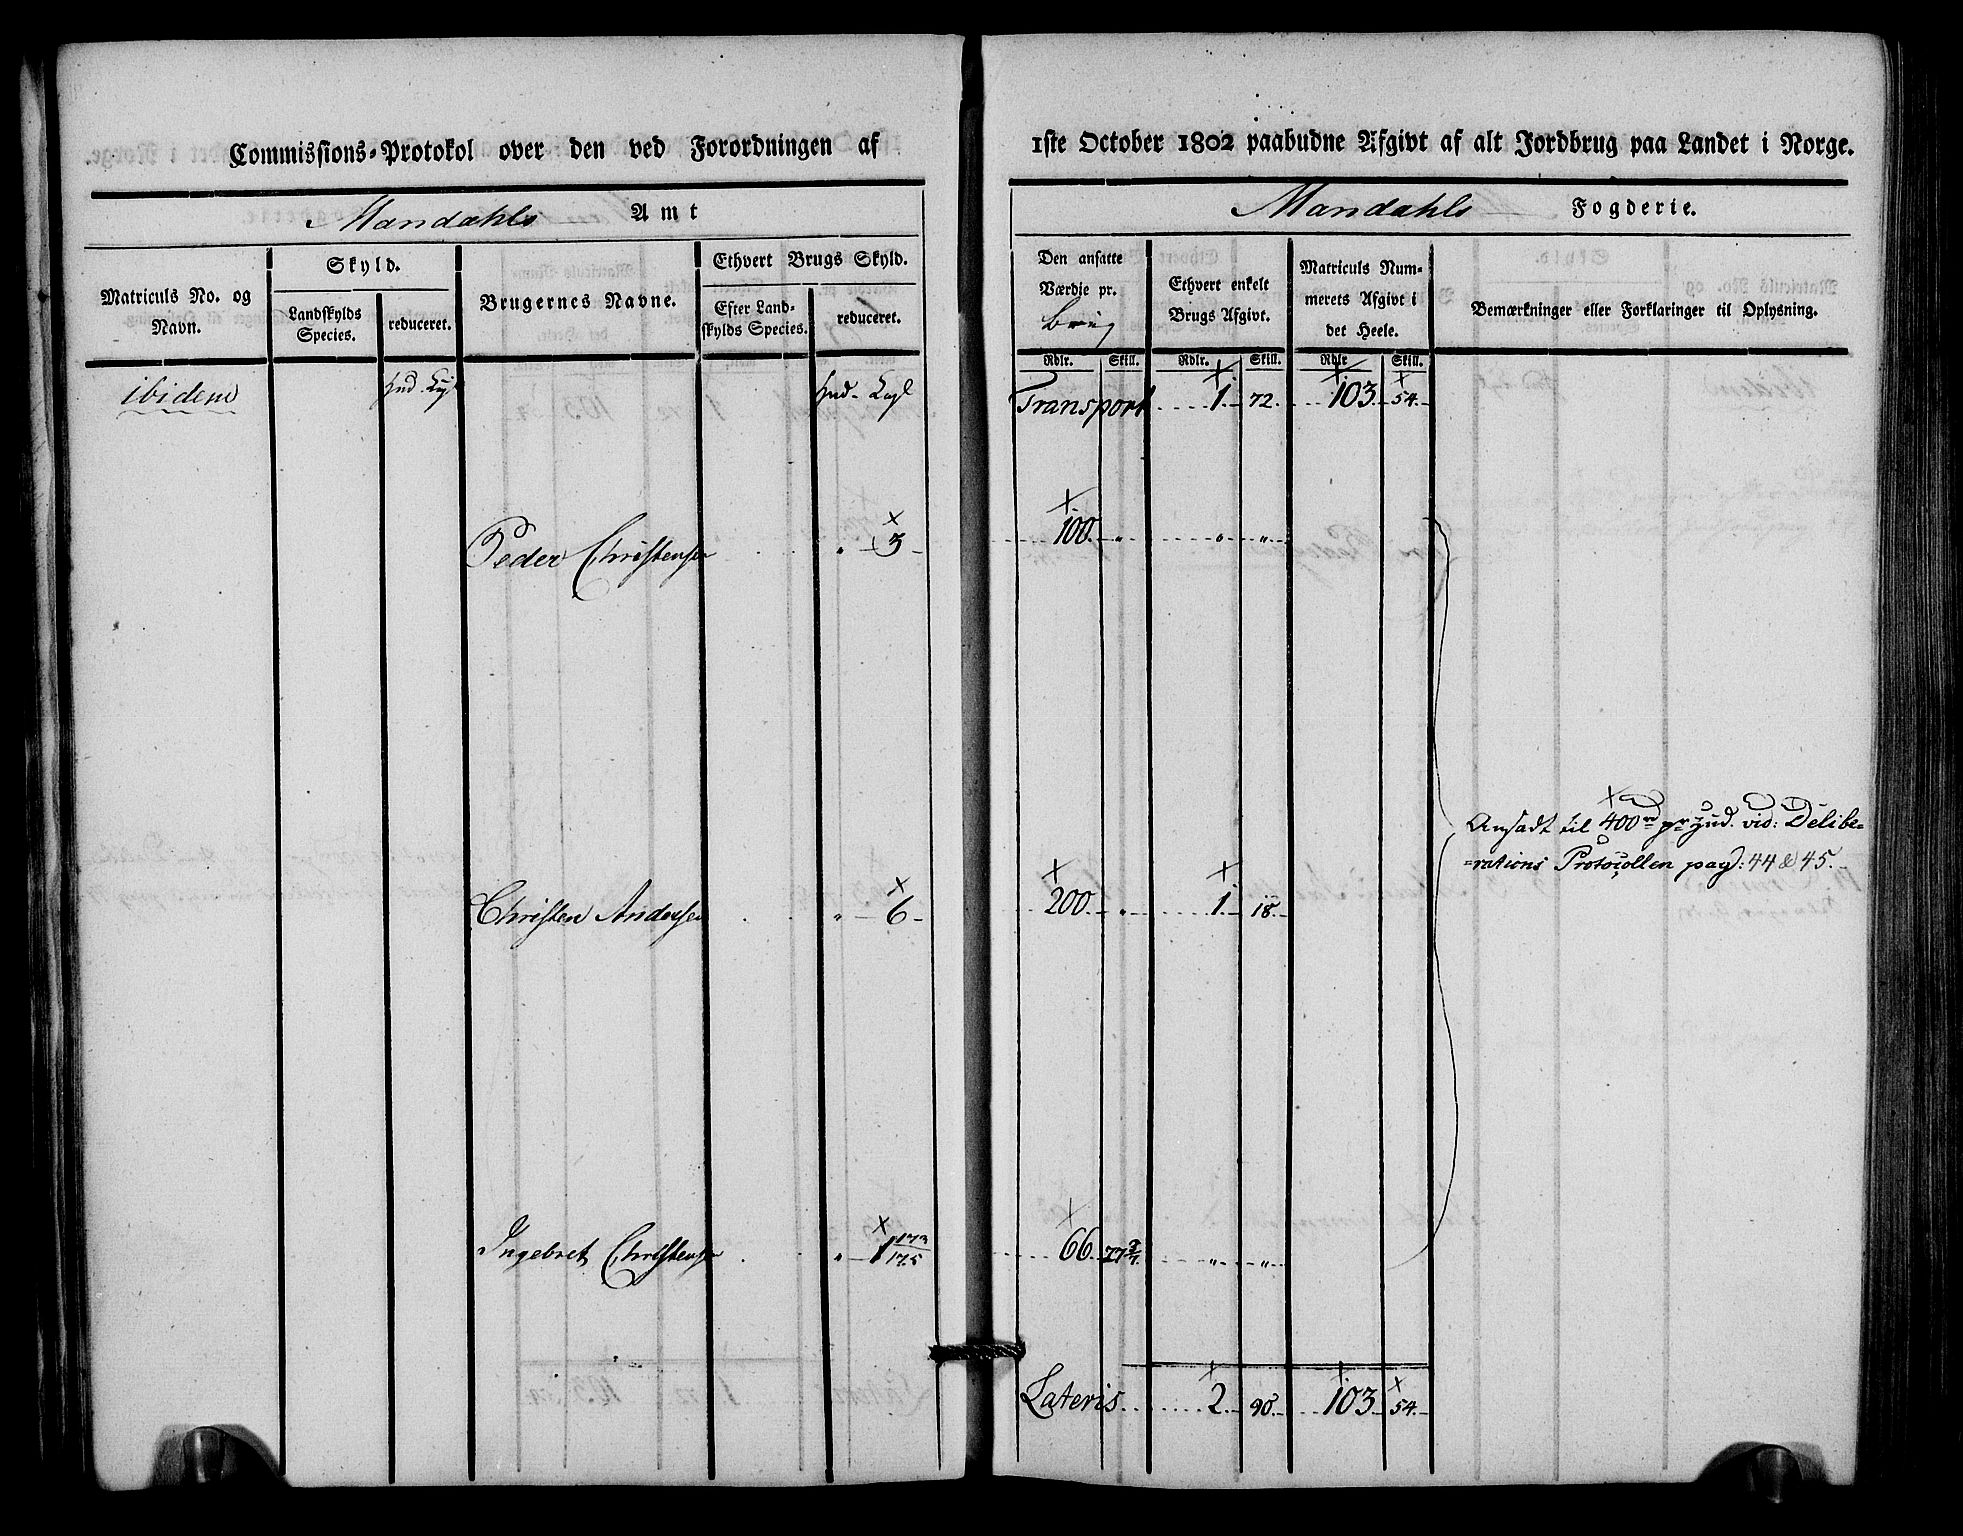 Commissions-Protokol over den ved Forordningen af 1ste October 1802 paabudne Afgivt af alt Jordbrug paa Landet i Norge.
Mandahls Amt
Mandahls Fogderie.
Matriculs No. og Navn.
Skyld.
Landskylds Species.
reduceret.
Brugernes Navne.
Ethvert Brugs Skyld.
Efter Landskylds Species.
reduceret.
Den ansatte Værdje pr. brug
Ethvert enkelt Brugs Afgivt.
Matriculs Nummerets Afgivt i det Heele.
Bemærkninger eller Forklaringer til Oplysning.
Rdlr. Skill. Rdlr. Skill. Rdlr Skill.
ibidem
Transport 1. 72. 103. 54.
Peder Christensen " 3 100. " " "
Ansadt til 400 rd pr Hud. vid: Delibe=
=rations Protocollen pag: 44 & 45.
Christen Andersen " 6 200 " 1. 18.
Ingebret Christensen " 1 173/175 66. 77 5/7. " "
Lateris 2. 90. 103. 54.